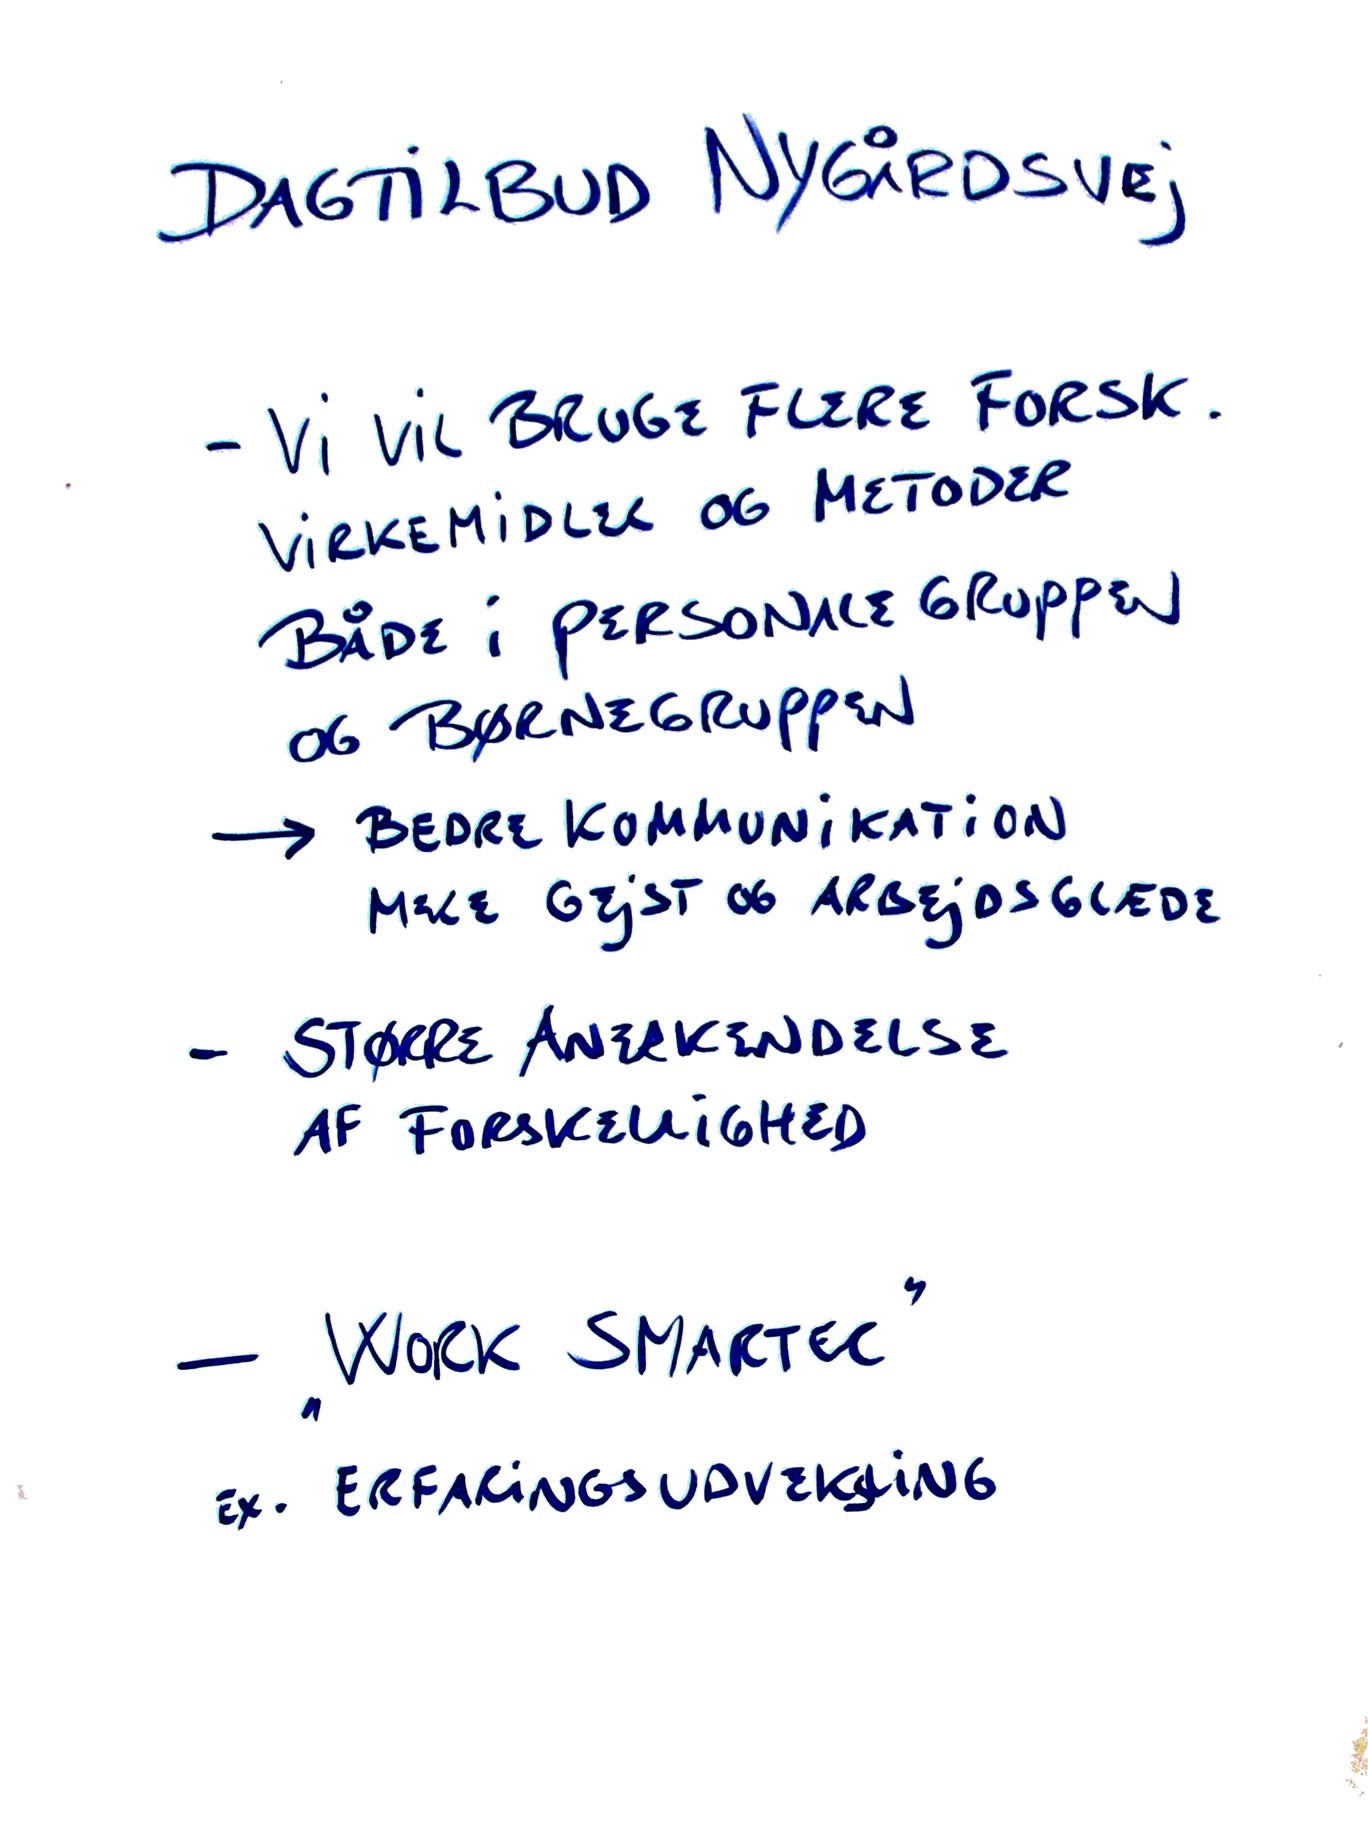 DAGTILBUD NYGÅRDSVEJ
- VI VIL BRUGE FLERE FORSK.
VIRKEMIDLER OG METODER
BÅDE i PERSONALEGRUPPEN
OG BØRNEGRUPPEN
→ BEDRE KOMMUNIKATION
MERE GEJST OG ARBEJDSGLÆDE
- STØRRE ANERKENDELSE
AF FORSKELLIGHED
— „WORK SMARTER”
EX. ERFARINGSUDVEKSLING